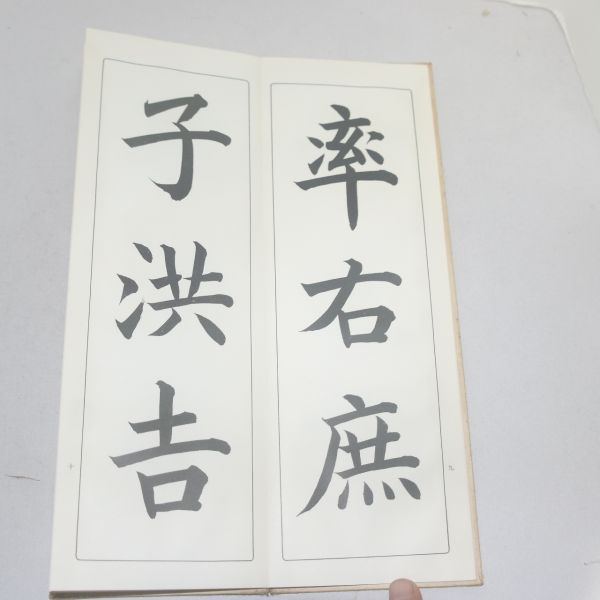 率右庶
九
子洪吉
十